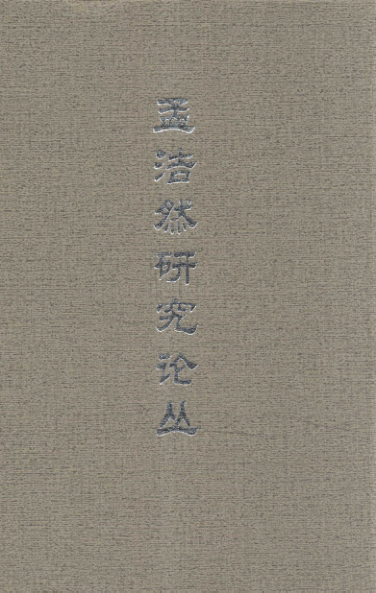 孟浩然研究论丛